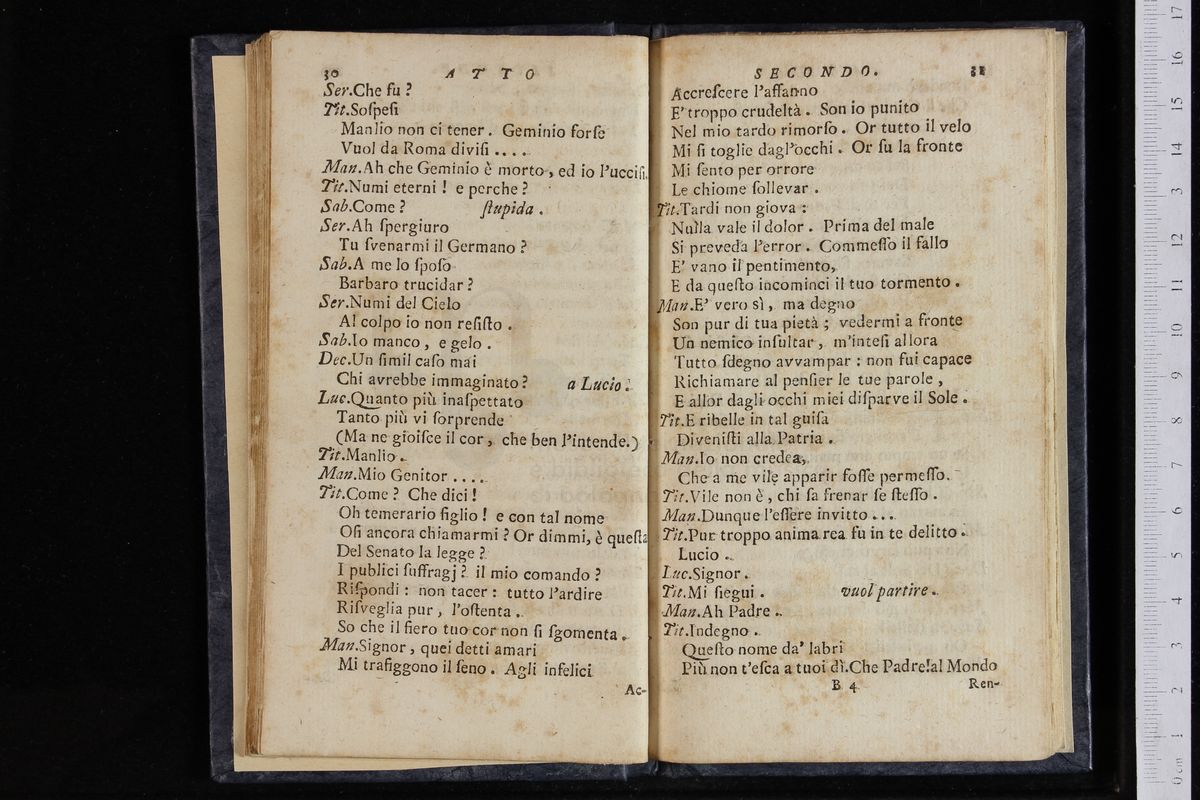 30 ATTO
Ser.Che fu ?
Tit.Soſpeſi
Manlio non ci tener . Geminio forſe
Vuol da Roma diviſi . . . .
Man.Ah che Geminio è morto , ed io l'ucciſi.
Tit.Numi eterni ! e perche ?
Sab.Come ? ſtupida .
Ser.Ah ſpergiuro
Tu ſvenarmi il Germano ?
Sab.A me lo ſpoſo
Barbaro trucidar ?
Ser.Numi del Cielo
Al colpo io non reſiſto .
Sab.Io manco , e gelo .
Dec.Un ſimil caſo mai
Chi avrebbe immaginato ? a Lucio .
Luc.Quanto più inaſpettato
Tanto più vi ſorprende
(Ma ne gioiſce il cor , che ben l'intende.)
Tit.Manlio .
Man.Mio Genitor . . . .
Tit.Come ? Che dici !
Oh temerario figlio ! e con tal nome
Oſi ancora chiamarmi ? Or dimmi, è queſta
Del Senato la legge ?
I publici ſuffragj ? il mio comando ?
Riſpondi : non tacer : tutto l'ardire
Riſveglia pur , l'oſtenta .
So che il fiero tuo cor non ſi ſgomenta .
Man.Signor , quei detti amari
Mi trafiggono il ſeno . Agli infelici
Ac-
SECONDO. 31
Accreſcere l'affanno
E' troppo crudeltà . Son io punito
Nel mio tardo rimorſo . Or tutto il velo
Mi ſi toglie dagl'occhi . Or ſu la fronte
Mi ſento per orrore
Le chiome ſollevar .
Tit.Tardi non giova :
Nulla vale il dolor . Prima del male
Si preveda l'error . Commeſſo il fallo
E' vano il pentimento,
E da queſto incominci il tuo tormento .
Man.E' vero sì , ma degno
Son pur di tua pietà ; vedermi a fronte
Un nemico inſultar , m'inteſi allora
Tutto ſdegno avvampar : non fui capace
Richiamare al penſier le tue parole ,
E allor dagli occhi miei diſparve il Sole .
Tit.E ribelle in tal guiſa
Diveniſti alla Patria .
Man.Io non credea,
Che a me vile apparir foſſe permeſſo.
Tit.Vile non è , chi ſa frenar ſe ſteſſo .
Man.Dunque l'eſſere invitto . . .
Tit.Pur troppo anima rea fu in te delitto .
Lucio .
Luc.Signor .
Tit.Mi ſiegui . vuol partire .
Man.Ah Padre .
Tit.Indegno .
Queſto nome da' labri
Più non t'eſca a tuoi dì.Che Padre!al Mondo
B 4 Ren-